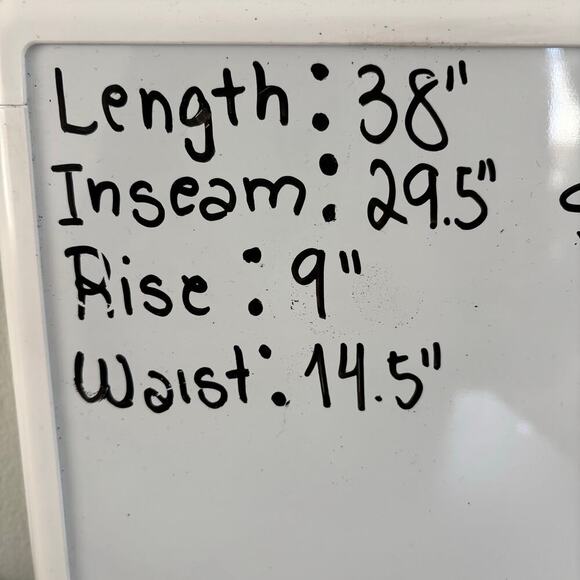 Length: 38"
Inseam: 29.5"
Rise: 9"
Waist: 14.5"